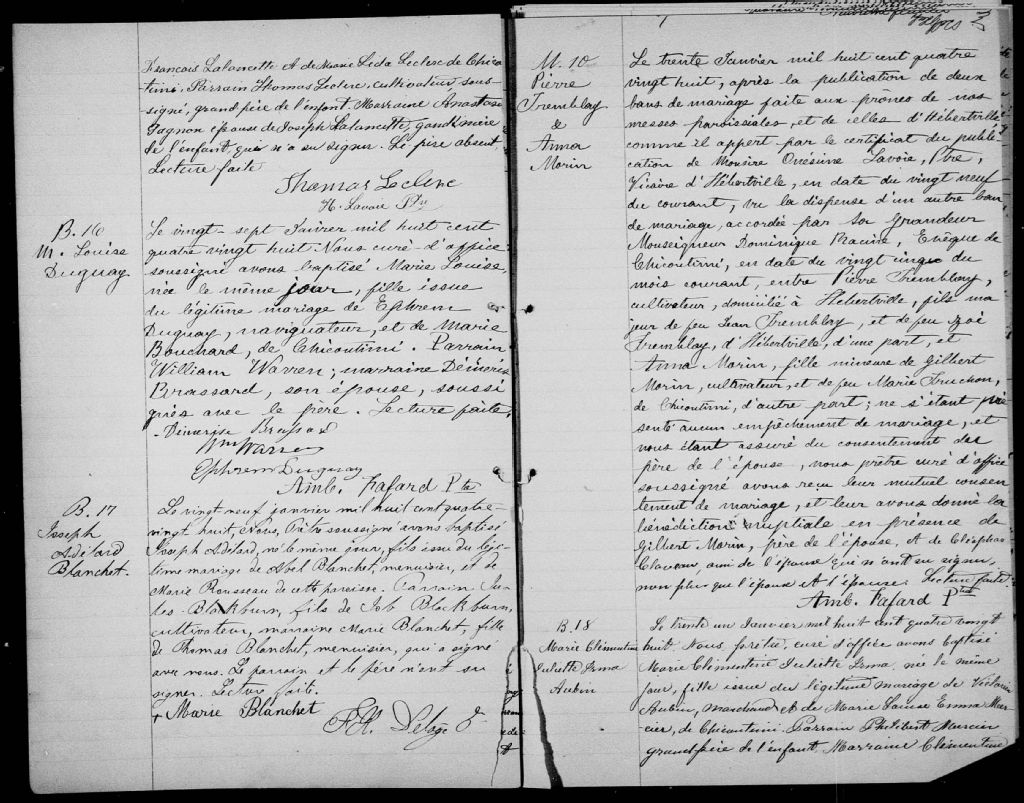 François Lalancette & de Marie Leda Leclerc de Chicou
timi. Parrain Thomas Leclerc, cultivateur, sous-
signé, grand père de l'enfant. Marraine Anastasie
Gagnon épouse de Joseph Lalancette, grand'mère
de l'enfant, qui n'a su signer. Le père absent.
Lecture faite
Thomas Leclerc
H. Lavoie Ptre
B. 16
M. Louise
Duguay
Le vingt-sept Janvier mil huit cent
quatre vingt huit Nous curé d'office
soussigné avons baptisé Marie Louise,
née le même jour, fille issue
du légitime mariage de Ephrem
Duguay, navigateur, et de Marie
Bouchard, de Chicoutimi. Parrain
William Warren; marraine Démérise
Brassard, son épouse, soussi
gnés avec le père. Lecture faite.
Démerise Brassard
Wm Warren
Ephrem Duguay
Amb. Fafard Ptre
B. 17
Joseph
Adélard
Blanchet.
Le vingt neuf janvier mil huit cent quatre-
vingt huit, Nous, Prêtre soussigné avons baptisé
Joseph Adélard, né le même jour, fils issu du légi-
time mariage de Abel Blanchet, menuisier, et de
Marie Rousseau de cette paroisse. Parrain Ju-
les Blackburn, fils de Job Blackburn,
cultivateur, marraine Marie Blanchet, fille
de Thomas Blanchet, menuisier, qui a signé
avec nous. Le parrain et le père n'ont su
signer. Lecture faite.
+ Marie Blanchet
F.X. Delage
M. 10
Pierre
Tremblay
&
Anna
Morin
Le trente Janvier mil huit cent quatre
vingt huit, après la publication de deux
bans de mariage faite aux prônes de nos
messes paroissiales, et de celles d'Hébertville
comme il appert par le certificat de publi-
cation de Monsire Onésime Lavoie, Ptre,
Vicaire d'Hébertville, en date du vingt neuf
du courant, vu la dispense d'un autre ban
de mariage, accordée par Sa Grandeur
Monseigneur Dominique Racine, Evêque de
Chicoutimi, en date du vingt cinq du
mois courant, entre Pierre Tremblay,
cultivateur, domicilié à Hébertville, fils ma
jeur de feu Jean Tremblay, et de feu Zoé
Tremblay, d'Hébertville, d'une part; et
Anna Morin, fille mineure de Gilbert
Morin, cultivateur, et de feu Marie Truchon,
de Chicoutimi, d'autre part; ne s'étant pré
senté aucun empêchement de mariage, et
nous étant assuré du consentement du
père de l'épouse, nous prêtre curé d'office
soussigné avons reçu leur mutuel consen
tement de mariage, et leur avons donné la
bénédiction nuptiale en présence de
Gilbert Morin, père de l'épouse, & de Cléophas
Claveau, ami de l'époux qui n'ont su signer,
non plus que l'époux & l'épouse. Lecture faite
Amb. Fafard Ptre
B. 18
Marie Clémentine
Juliette Irma
Aubin
Le trente un Janvier mil huit cent quatre vingt
huit. Nous, prêtre, curé d'office avons baptisé
Marie Clémentine Juliette Irma, née le même
jour, fille issue du légitime mariage de Victorin
Aubin, marchand & de Marie Louise Emma Mer-
cier, de Chicoutimi. Parrain Philibert Mercier
grand père de l'enfant. Marraine Clémentine